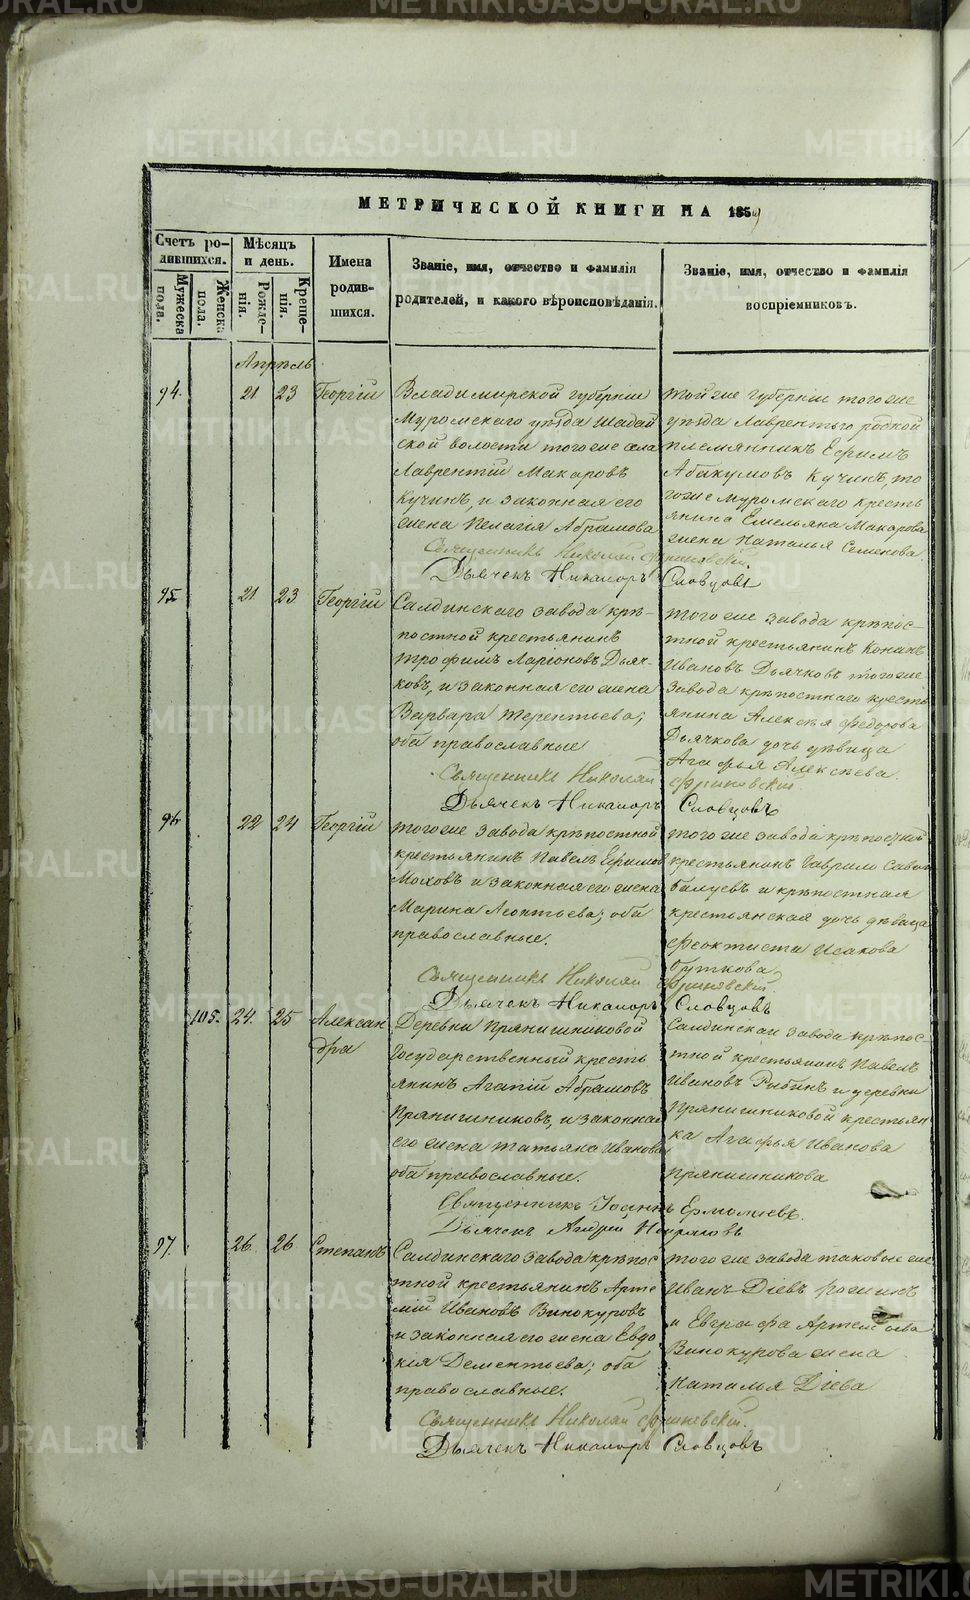 МЕТРИЧЕСКОЙ КНИГИ НА 1859
Счетъ ро-
дившихся.
Мужеска
пола.
Женска
пола.
Мѣсяцъ
и день.
Рожде-
нія.
Креще-
нія.
Имена
родив-
шихся.
Званіе, имя, отчество и фамилія
родителей, и какого вѣроисповѣданія.
Званіе, имя, отчество и фамилія
воспріемниковъ.
Апрѣль
94. 21 23 Георгій
Владимирской губерніи
Муромскаго уѣзда
ской волости того же села
Лаврентій Макаровъ
Кучинъ, и законная его
жена Пелагія Абрамова
той же губерніи того же
уѣзда Лаврентьго родной
племянникъ Ефимъ
Абакумовъ Кучинъ, то
го же Муромскаго кресть
янина Емельяна Макарова
жена Наталья Семенова
Священникъ Николай Фриновскій.
Дьячекъ Никаноръ Словцовъ
95. 21 23 Георгій
Салдинскаго завода крѣ-
постной крестьянинъ
Трофимъ Ларіоновъ Дьяч-
ковъ, и законная его жена
Варвара Терентьева;
оба православные
того же завода крѣпос-
тной крестьянинъ Кононъ
Ивановъ Дьячковъ того же
завода крѣпостнаго кресть
янина Алексѣя Федорова
Дьячкова дочь дѣвица
Агафья Алексѣева.
Священникъ Николай Фриновскій.
Дьячекъ Никаноръ Словцовъ
96. 22 24 Георгій
того же завода крѣпостной
крестьянинъ Павелъ Ефимов
Моховъ и законная его жена
Марина Леонтьева; оба
православные.
того же завода крѣпостной
крестьянинъ Гаврило Савин
Балуевъ и крѣпостная
крестьянская дочь дѣвица
Феоктиста Исакова
Буткова
Священникъ Николай Фриновскій.
Дьячекъ Никаноръ Словцовъ
105. 24. 25 Алексан
дра
Деревни Прянишниковой
Государственный кресть
янинъ Агапій Абрамовъ
Прянишниковъ, и законная
его жена Татьяна Иванова
оба православные.
Салдинскаго завода крѣпос-
тной крестьянинъ Павелъ
Ивановъ Рыбинъ и деревни
Прянишниковой крестьян
ка Агафья Иванова
Прянишникова
Священникъ Іоаннъ Ермолаевъ.
Дьячекъ Андрей
97. 26. 26 Степанъ
Салдинскаго завода крѣпос
тной крестьянинъ Арте
мій Ивановъ Винокуровъ
и законная его жена Евдо
кія Дементьева; оба
православные.
того же завода таковые же
Иванъ Діевъ
и Евграфа Артемьева
Винокурова жена
Наталья Діева
Священникъ Николай Фриновскій.
Дьячекъ Никаноръ Словцовъ
METRIKI.GASO-URAL.RU